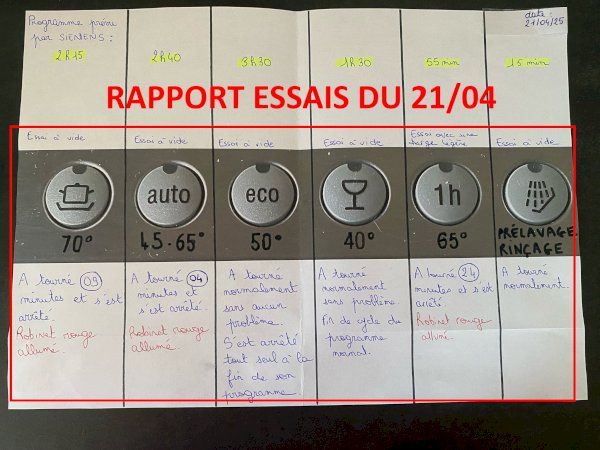 Programme prévu
par SIEMENS :
date :
21/04/25
2h15
2h40
3h30
1h30
55 min
15 min
RAPPORT ESSAIS DU 21/04
Essai à vide
Essai à vide
Essai à vide
Essai à vide
Essai avec une
charge légère
Essai à vide
auto
eco
1h
70°
45.65°
50°
40°
65°
PRÉLAVAGE.
RINÇAGE
A tourné 09
minutes et s'est
arrêté.
Robinet rouge
allumé.
A tourné 04
minutes et
s'est arrêté.
Robinet rouge
allumé.
A tourné
normalement
sans aucun
problème.
S'est arrêté
tout seul à la
fin de son
programme.
A tourné
normalement
sans problème
Fin de cycle du
programme
normal.
A tourné 24
minutes et s'est
arrêté.
Robinet rouge
allumé.
A tourné
normalement.